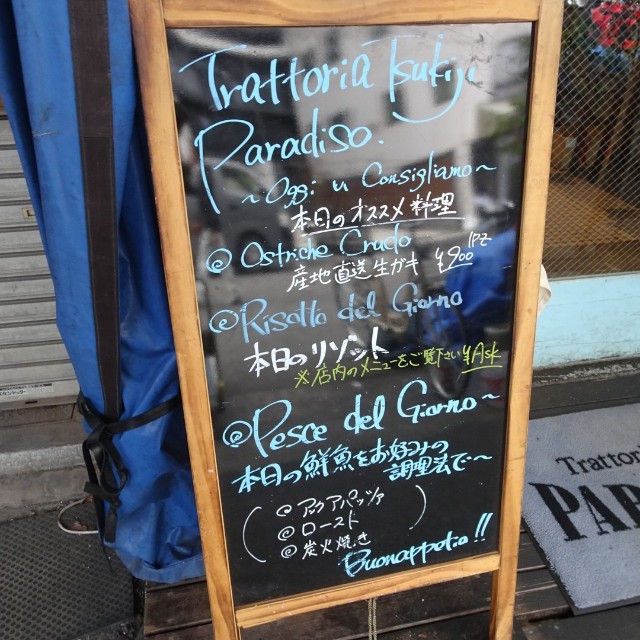 Trattoria Tsukiji
Paradiso.
~Oggi vi Consigliamo~
本日のオススメ料理
◎Ostriche Crudo
産地直送生ガキ ¥900 1PZ
◎Risotto del Giorno
本日のリゾット
※店内のメニューをご覧下さい ¥Ask
◎Pesce del Giorno~
本日の鮮魚をお好みの
調理法で〜
◎アクアパッツァ
◎ロースト
◎炭火焼き
Buonappetio!!
Trattori
PAR